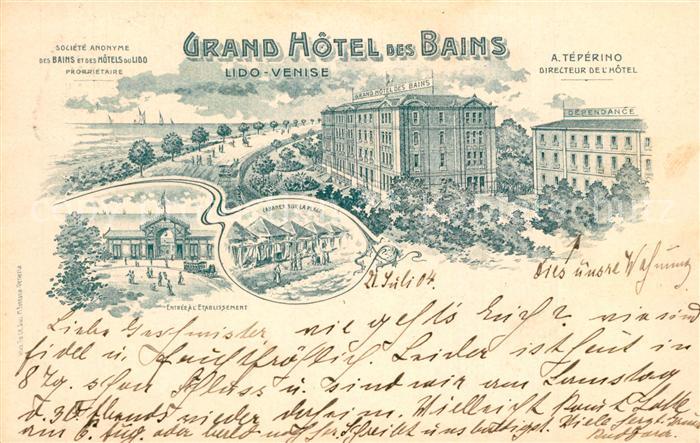 GRAND HÔTEL DES BAINS
LIDO - VENISE
SOCIÉTÉ ANONYME
DES BAINS ET DES HÔTELS DU LIDO
PROPRIÉTAIRE
A. TÉPÉRINO
DIRECTEUR DE L'HÔTEL
GRAND HÔTEL DES BAINS
DÉPENDANCE
CABANES SUR LA PLAGE
ENTRÉE À L'ÉTABLISSEMENT
Juli 04
Dies unsre Wohnung
Liebe Geschwister, wie geht's Euch? wir sind
fidel u. Leider ist heut in
8 Tg. schon Schluss u. sind wir am Samstag
d. 30 Abends wieder daheim. Vielleicht
am 6. Aug. oder bald Schreibt uns Viele